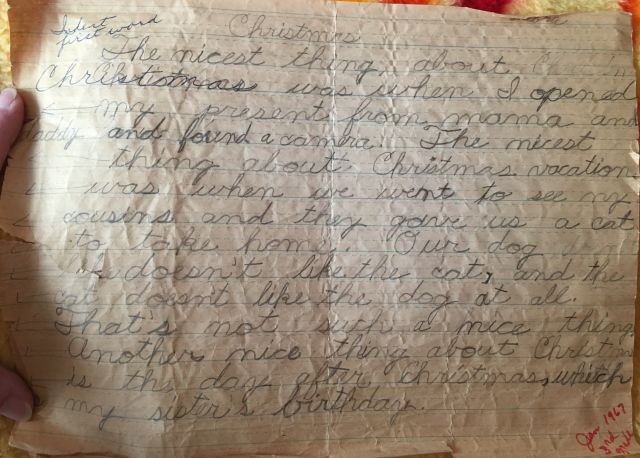 Indent
first word
Christmas
The nicest thing about
Christmas was when I opened
my present from mama and
daddy and found a camera. The nicest
thing about Christmas vacation
was when we went to see my
cousins and they gave us a cat
to take home. Our dog
doesn't like the cat, and the
cat doesn't like the dog at all.
That's not such a nice thing
Another nice thing about Christm
is the day after Christmas, which
my sister's birthday.
Jan 1967
3rd